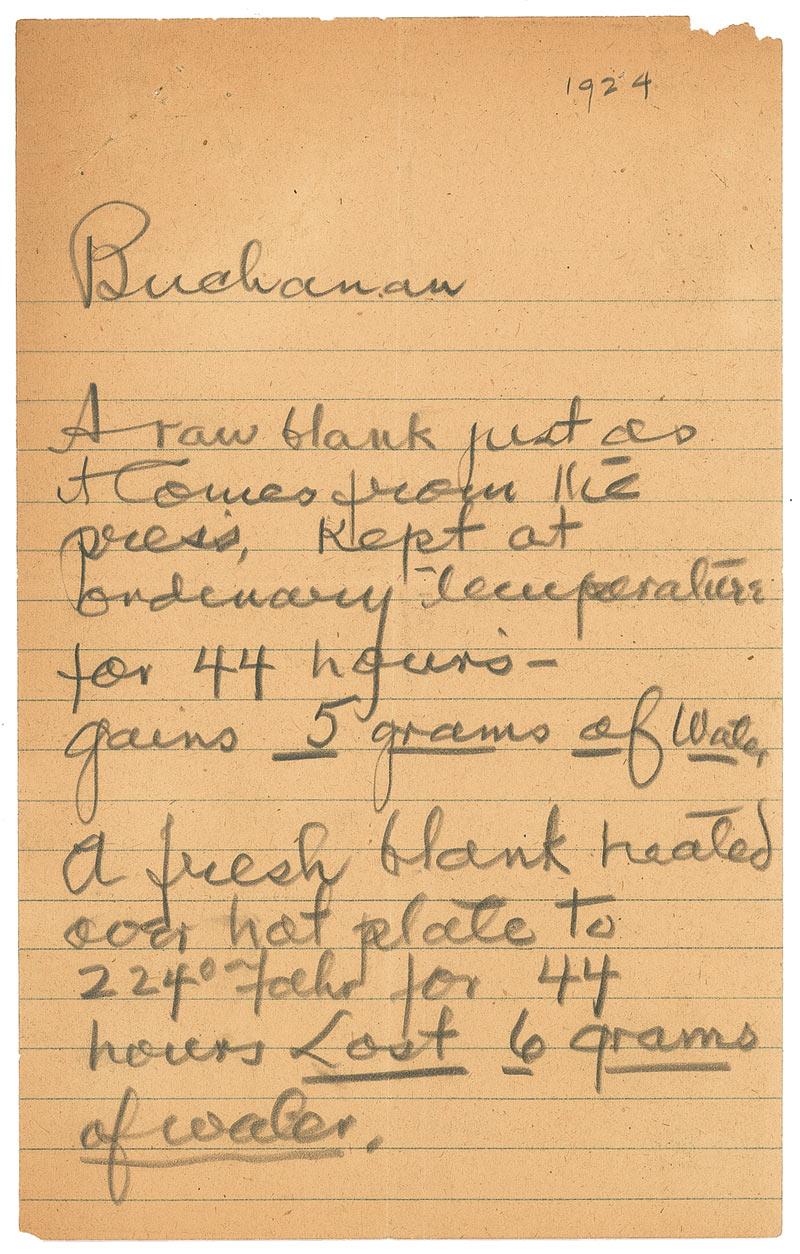 1924
Buchanan
A raw blank just as
it Comes from the
press, Kept at
ordinary temperature
for 44 hours-
gains 5 grams of Water
A fresh blank heated
over hot plate to
224° Fahr for 44
hours Lost 6 grams
of water.